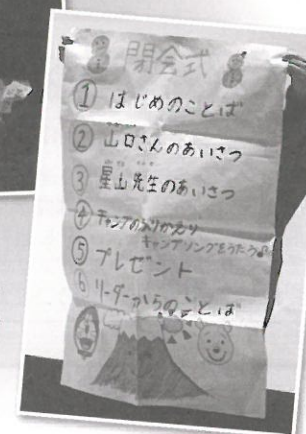 閉会式
① はじめのことば
② 山口さんのあいさつ
③ 星山先生のあいさつ
④ キャンプのふりかえり
キャンプソングをうたう♪
⑤ プレゼント
⑥ リーダーからのことば